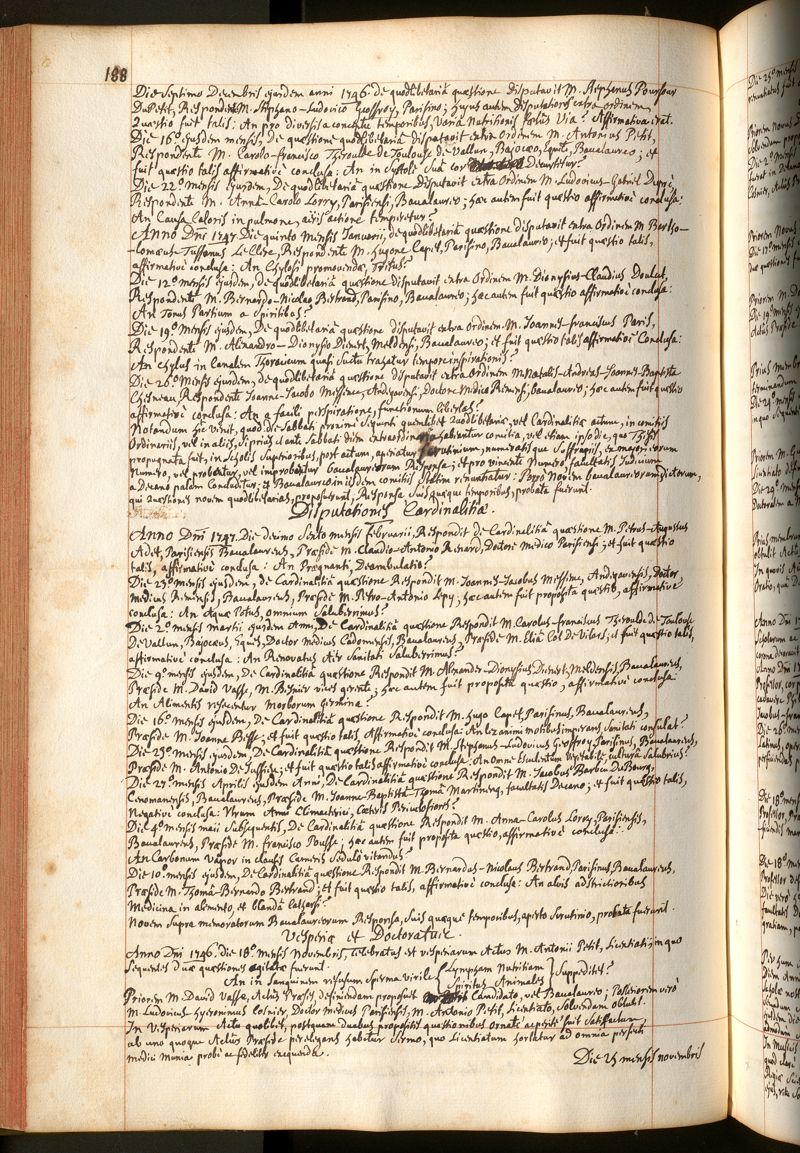 188
Die Septimo Decembris ejusdem anni 1746 de quodlibetariâ quæstione disputavit M. Stephanus Pourfour
Du Petit, Respondente M. Stephano-Ludovico Geoffroy, Parisino; hujus autem disputationis extra ordinem
Quæstio fuit talis: An pro diversis a conceptu temporibus, varia Nutritionis foetûs Via? Affirmativa erat.
Die 16º ejusdem mensis, de quæstione quodlibetariâ disputavit extra Ordinem M. Antonius Petit,
Respondente M. Carolo-francisco Theroulde de Toulouse de Vallun, Bajocæo, Equite, Baccalaureo; et
fuit quæstio talis affirmativè conclusa: An in Systole Suâ cor decurtetur?
Die 22º mensis Ejusdem, De quodlibetariâ quæstione Disputavit extra Ordinem M. Ludovicus-Gabriel Dupré,
Respondente M. Anna-Carolo Lorry, Parisiensi, Baccalaureo; hæc autem fuit quæstio affirmativè conclusa:
An Causa Caloris in pulmone, aëris actione temperetur?
Anno Dni 1747 Die quinto Mensis Januarii, de quodlibetariâ quæstione disputavit extra Ordinem M Bartho-
-lomæus Tussanus Le Clerc, Respondente M. hugone Capet, Parisino, Baccalaureo; et fuit quæstio talis,
affirmativè conclusa: An Chylosi promovendæ, Tritus?
Die 12º mensis Ejusdem, de quodlibetariâ quæstione disputavit extra Ordinem M. Dionysius-Claudius Doulcet,
Respondente M. Bernardo-Nicolao Bertrand, Parisino, Baccalaureo; hæc autem fuit quæstio affirmativè conclusa:
An Tonus Partium a Spiritibus?
Die 19º Mensis Ejusdem, De quodlibetariâ quæstione disputavit extra Ordinem M. Joannes-franciscus Paris,
Respondente M. Alexandro-Dionysio Dienert, Meldensi, Baccalaureo; et fuit quæstio talis affirmativè Conclusa:
An Chylus in Canalem Thoracicum quasi Suctu trahatur tempore inspirationis?
Die 26º Mensis Ejusdem, de quodlibetariâ quæstione disputavit extra Ordinem M Natalis-Andreas-Joannes-Baptista
Chesneau, Respondente Joanne-Jacobo Messence, Andegavensi, Doctore Medico Remensi, Baccalaureo; hæc autem fuit quæstio
affirmativè conclusa: An a facili perspiratione, functionum libertas?
Notandum hîc venit, quod die Sabbati proximè Sequenti quemlibet Quodlibetariæ, vel Cardinalitiæ actum, in comitiis
Ordinariis, vel in aliis, si prius ante Sabbati diem extraordinaria habeantur comitia, vel etiam ipso die, quo Thesis
propugnata fuit, in Scholis Superioribus, post actum, aperiatur Scrutinium, numeratisque Suffragiis, ex majori eorum
numero, vel probentur, vel improbentur Baccalaureorum Responsa; et pro vincente Numero, facultatis Judicium
a Decano palam Concluditur; et Baccalaureo in iisdem comitiis Statim renuntiatur: Porrò Novem Baccalaureorum dictorum,
qui Quæstiones novem quodlibetarias, proposuerunt, Responsa Suis quæque temporibus, probata fuerunt.
Disputationes Cardinalitiæ.
Anno Dni 1747. Die decimo Sexto mensis Februarii, Respondit de Cardinalitiâ quæstione M. Petrus-Augustus
Adet, Parisiensis Baccalaureus, Præside M. Claudio-Antonio Renard, Doctore Medico Parisiensi; et fuit quæstio
talis, affirmativè conclusa: An Prægnanti, Deambulatio?
Die 23º mensis ejusdem, de Cardinalitiâ quæstione Respondit M. Joannes-Jacobus Messence, Andegavensis, Doctor
Medicus Remensis, Baccalaureus, Præside M. Petro-Antonio Lepy; hæc autem fuit proposita quæstio, affirmativè
conclusa: An Aquæ Potus, omnium Saluberrimus?
Die 2º mensis martii ejusdem Anni, De Cardinalitiâ quæstione Respondit M. Carolus-franciscus Theroulde de Toulouse
De Vallun, Bajocæus, Eques, Doctor Medicus Cadomensis, Baccalaureus, Præside M. Eliâ Col de Vilars; et fuit quæstio talis,
affirmativè conclusa: An Renovatus Aër Sanitati Saluberrimus?
Die 9º mensis ejusdem, De Cardinalitiâ quæstione Respondit M Alexander-Dionysius Dienert, Meldensis Baccalaureus,
Præside M. David Vasse, M. Besnier vices gerente; hæc autem fuit proposita quæstio, affirmativè conclusa:
An Alimenta rescentur Morborum Germina?
Die 16º mensis ejusdem, De Cardinalitiâ quæstione Respondit M. Hugo Capet, Parisinus, Baccalaureus,
Præside M. Joanne Besse; et fuit quæstio talis, Affirmativè conclusa: An lex animi motibus imperans Sanitati consulat?
Die 23º mensis Ejusdem, De Cardinalitiâ quæstione Respondit M. Stephanus-Ludovicus Geoffroy Parisinus, Baccalaureus,
Præside M. Antonio De Jussieu; et fuit quæstio talis affirmativè conclusa: An Omne Esculentum Vegetabile, culturâ Salubrius?
Die 27º mensis Aprilis ejusdem Anni, De Cardinalitiâ quæstione Respondit M. Jacobus Barbeu Du Bourg,
Cenomanensis, Baccalaureus, Præside M. Joanne-Baptistâ Thomâ Martinenq, facultatis Decano; et fuit quæstio talis,
Negativè conclusa: Utrum Anni Climacterici, Cæteris Periculosiores?
Die 4º mensis Maii Subsequentis, De Cardinalitiâ quæstione Respondit M. Anna-Carolus Lorry, Parisiensis,
Baccalaureus, Præside M. Francisco Pousse; hæc autem fuit proposita quæstio, affirmativè conclusa:
An Carbonum Vapor in clausis Cameris Sedulò vitandus?
Die 10º mensis ejusdem, De Cardinalitiâ quæstione Respondit M. Bernardus-Nicolaus Bertrand, Parisinus, Baccalaureus,
Præside M. Thomâ-Bernardo Bertrand; et fuit quæstio talis, affirmativè conclusa: An alvis adstrictioribus
Medicina in alimento, et blandâ Catharsi?
Novem Supra memoratorum Baccalaureorum Responsa, Suis quæque temporibus, aperto Scrutinio, probata fuerunt.
Vesperiæ et Doctoratus.
Anno Dni 1746, die 18º Mensis Novembris, Celebratus est vesperiarum Actus M. Antonii Petit, Licentiati; in quo
Sequentes duæ quæstiones agitatæ fuerunt.
An in Sanguinem refusum Sperma virile { Lympham Nutritiam / Spiritus Animales } Suppeditet?
Priorem M. David Vasse, Actûs Præses, definiendam proposuit Candidato, vel Baccalaureo; Posteriorem verò
M. Ludovicus hyeronimus Cosnier, Doctor Medicus Parisiensis, M. Antonio Petit, Licentiato, Solvendam obtulit.
In Vesperiarum Actu quolibet, postquam Duabus propositis quæstionibus Ornatè ac peritè fuit Satisfactum,
ab uno quoque Actûs Præside perelegans habetur Sermo, quo Licentiatum hortatur ad omnia perfecti
medici munia probè ac fideliter exequenda.
Die 25 mensis novembris